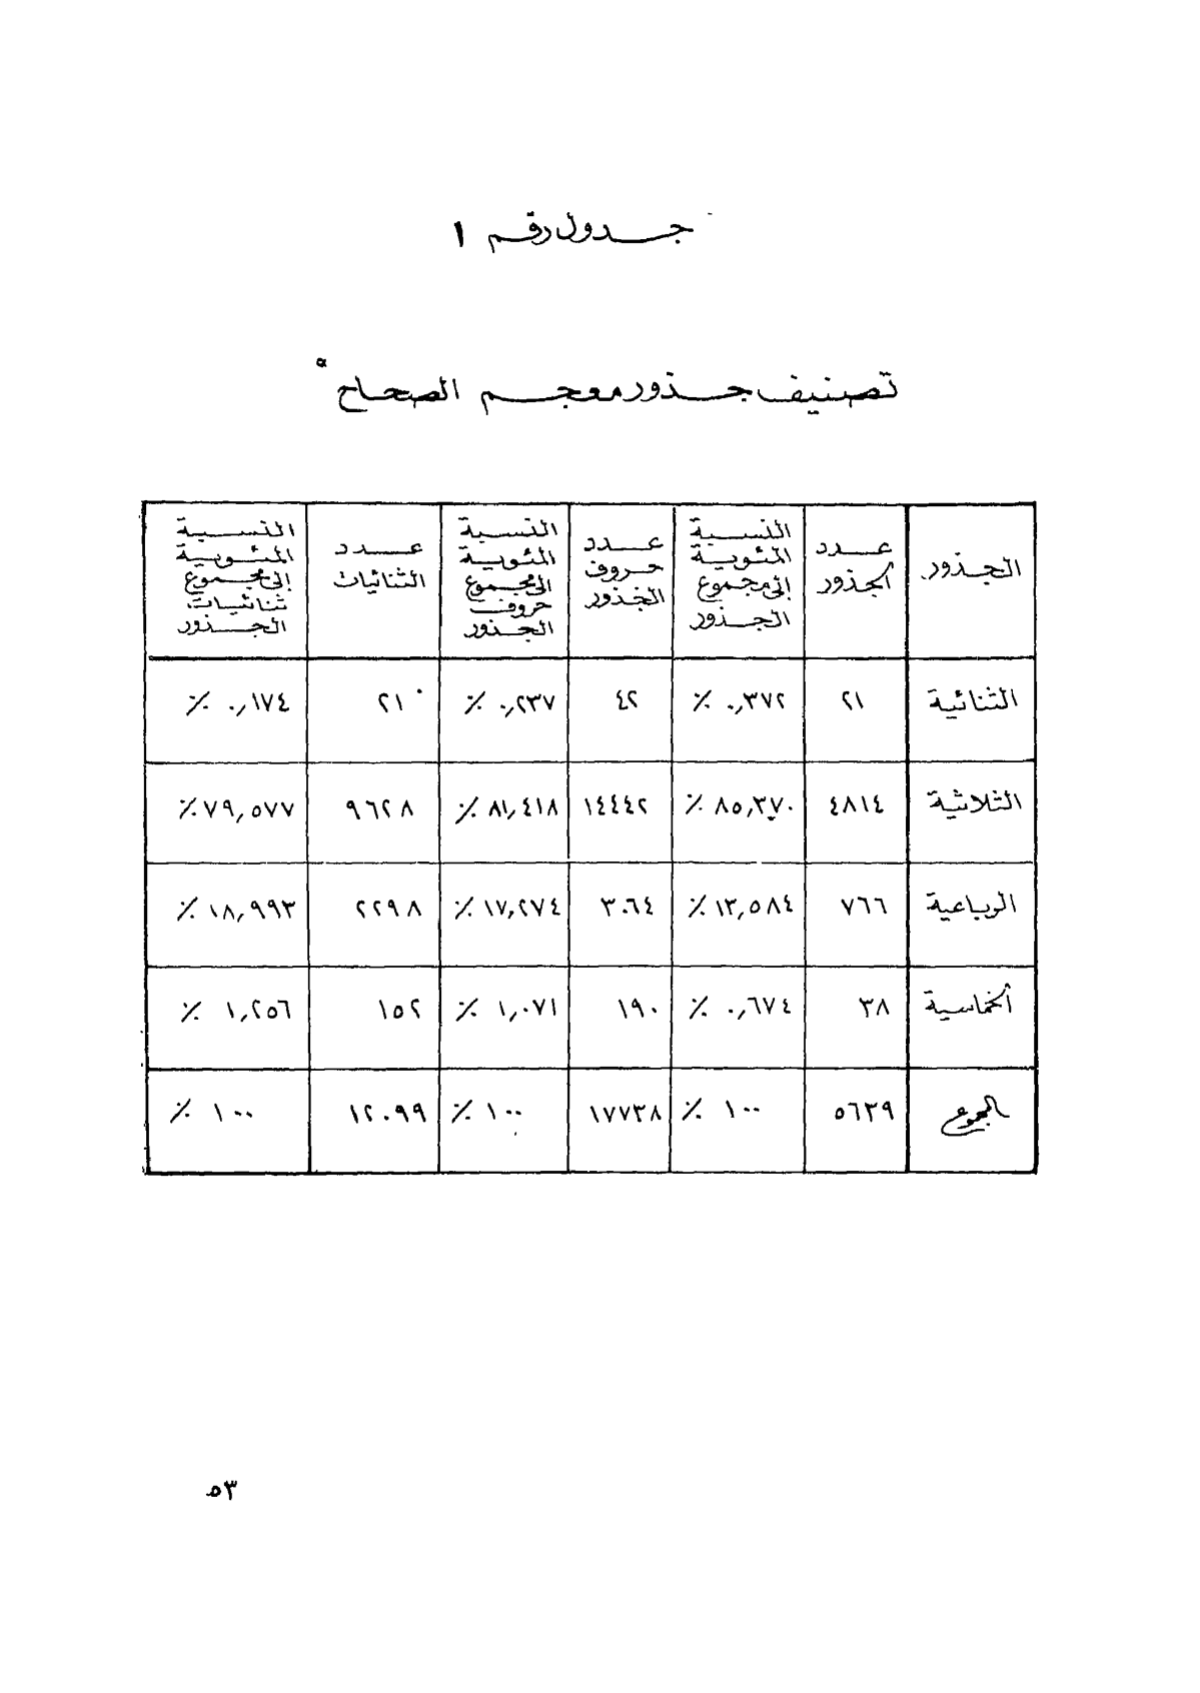 جدول رقم ١
تصنيف جذور معجم الصحاح *
الجذور | عدد الجذور | النسبة المئوية إلى مجموع الجذور | عدد حروف الجذور | النسبة المئوية الى مجموع حروف الجذور | عدد الثنائيات | النسبة المئوية إلى مجموع ثنائيات الجذور
الثنائية | ٢١ | ٠,٣٧٢ ٪ | ٤٢ | ٠,٢٣٧ ٪ | ٢١ | ٠,١٧٤ ٪
الثلاثية | ٤٨١٤ | ٨٥,٣٧٠ ٪ | ١٤٤٤٢ | ٨١,٤١٨ ٪ | ٩٦٢٨ | ٧٩,٥٧٧ ٪
الرباعية | ٧٦٦ | ١٣,٥٨٤ ٪ | ٣٠٦٤ | ١٧,٢٧٤ ٪ | ٢٢٩٨ | ١٨,٩٩٣ ٪
الخماسية | ٣٨ | ٠,٦٧٤ ٪ | ١٩٠ | ١,٠٧١ ٪ | ١٥٢ | ١,٢٥٦ ٪
المجموع | ٥٦٣٩ | ١٠٠ ٪ | ١٧٧٣٨ | ١٠٠ ٪ | ١٢٠٩٩ | ١٠٠ ٪
٥٣